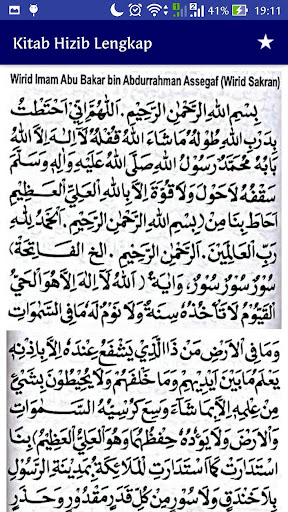 41% 19:11
Kitab Hizib Lengkap
Wirid Imam Abu Bakar bin Abdurrahman Assegaf (Wirid Sakran)
بِسْمِ اللهِ الرَّحْمٰنِ الرَّحِيْمِ. اَللّٰهُمَّ اِنِّي احْتَطْتُ
بِدَرْبِ اللهِ طُوْلُهُ مَا شَاءَ اللهُ قُفْلُهُ لَا اِلٰهَ اِلَّا اللهُ
بَابُهُ مُحَمَّدٌ رَسُوْلُ اللهِ صَلَّى اللهُ عَلَيْهِ وَاٰلِهِ وَسَلَّمَ
سَقْفُهُ لَاحَوْلَ وَلَا قُوَّةَ اِلَّا بِاللهِ الْعَلِيِّ الْعَظِيْمِ
اَحَاطَ بِنَا مِنْ (بِسْمِ اللهِ الرَّحْمٰنِ الرَّحِيْمِ. اَلْحَمْدُ لِلّٰهِ
رَبِّ الْعَالَمِيْنَ. الرَّحْمٰنِ الرَّحِيْمِ . الخ الفَاتِحَة)
سُوْرٌ سُوْرٌ سُوْرٌ، وَاٰيَةُ (اَللهُ لَا اِلٰهَ اِلَّا هُوَ الْحَيُّ
الْقَيُّوْمُ لَا تَأْخُذُهُ سِنَةٌ وَلَا نَوْمٌ لَهُ مَا فِى السَّمٰوَاتِ
وَمَا فِى الْاَرْضِ مَنْ ذَا الَّذِيْ يَشْفَعُ عِنْدَهُ اِلَّا بِاِذْنِهِ
يَعْلَمُ مَا بَيْنَ اَيْدِيْهِمْ وَمَا خَلْفَهُمْ وَلَا يُحِيْطُوْنَ بِشَيْءٍ
مِنْ عِلْمِهِ اِلَّا بِمَا شَاءَ وَسِعَ كُرْسِيُّهُ السَّمٰوَاتِ
وَالْاَرْضَ وَلَا يَؤُدُهُ حِفْظُهُمَا وَهُوَ الْعَلِيُّ الْعَظِيْمُ) بِنَا
اسْتَدَارَتْ كَمَا اسْتَدَارَتِ الْمَلَائِكَةُ بِمَدِيْنَةِ الرَّسُوْلِ
بِلَا خَنْدَقٍ وَلَا سُوْرٍ مِنْ كُلِّ قَدَرٍ مَقْدُوْرٍ وَحَذَرٍ